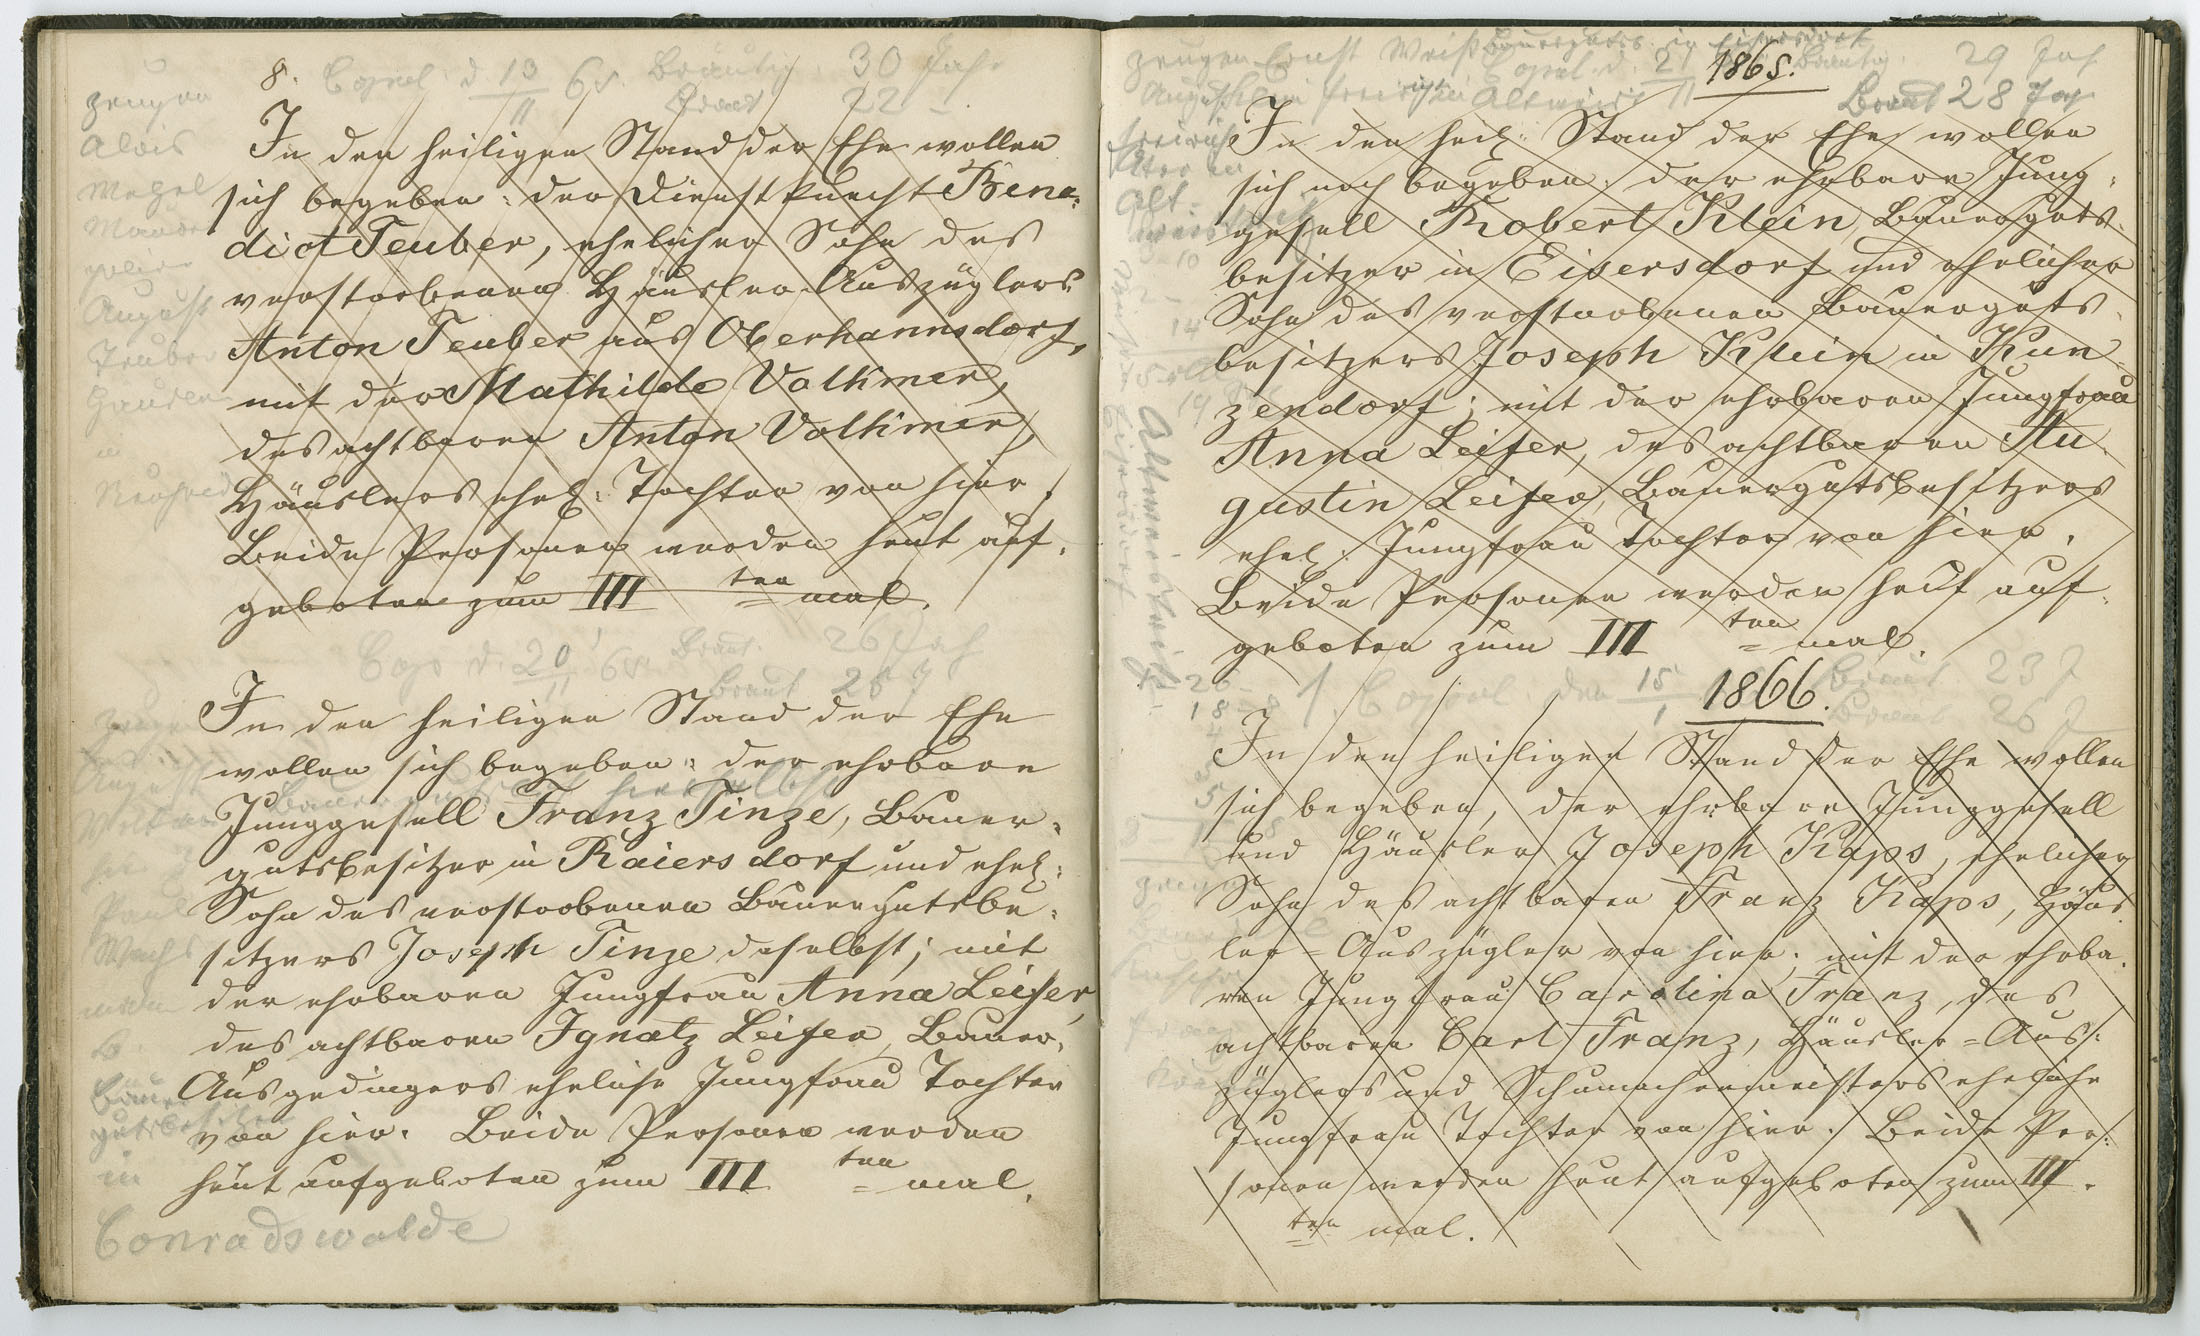 8. Copul. d. 13/11 65. Bräutig. 30 Jahr
Braut 22 –
Zeugen
Alois
August
Teuber
in
In den heiligen Stand der Ehe wollen
sich begeben: der Dienstknecht Bene-
dict Teuber, ehelicher Sohn des
verstorbenen Häusler-Auszüglers
Anton Teuber aus Oberhannsdorf,
mit der Mathilde Volkmer,
des achtbaren Anton Volkmer,
Häuslers ehel: Tochter von hier.
Beide Personen werden heut auf-
geboten zum III ten = mal.
Cop. d. 20/11 65. Bräut. 26 Jah
Braut 25 J
In den heiligen Stand der Ehe
wollen sich begeben: der ehrbare
Junggesell Franz Tinze, Bauer-
gutsbesitzer in Raiersdorf und ehel:
Sohn des verstorbenen Bauergutsbe-
sitzers Joseph Tinze daselbst; mit
der ehrbaren Jungfrau Anna Leifer,
des achtbaren Ignatz Leifer, Bauer-
Ausgedingers eheliche Jungfrau Tochter
von hier. Beide Personen werden
heut aufgeboten zum III ten = mal.
August
Paul
Wachs
mann
Bauer
gutsbesitzer
in
Conradswalde
Zeugen Ernst Weiß Bauergutsb. in Eisersdorf
1865.
Copul. d. 21/11 Bräutig. 29 Jah
Braut 28 Jah
In den heil: Stand der Ehe wollen
sich noch begeben: der ehrbare Jung-
gesell Robert Klein, Bauerguts-
besitzer in Eisersdorf und ehelicher
Sohn des verstorbenen Bauerguts-
besitzers Joseph Klein in Kun-
zendorf; mit der ehrbaren Jungfrau
Anna Leifer, des achtbaren Au-
gustin Leifer, Bauergutsbesitzers
ehel: Jungfrau Tochter von hier.
Beide Personen werden heut auf-
geboten zum III ten = mal.
1866.
1. Copul den 15/1 Bräut 23 J
Braut 26 J
In den heiligen Stand der Ehe wollen
sich begeben, der ehrbare Junggesell
und Häusler Joseph Kaps, ehelicher
Sohn des achtbaren Franz Kaps, Häus
ler-Auszügler von hier; mit der ehrba-
ren Jungfrau Carolina Franz, des
achtbaren Carl Franz, Häusler-Aus:
züglers und Schumachermeisters eheliche
Jungfrau Tochter von hier. Beide Per:
sonen werden heut aufgeboten zum III.
ten mal.